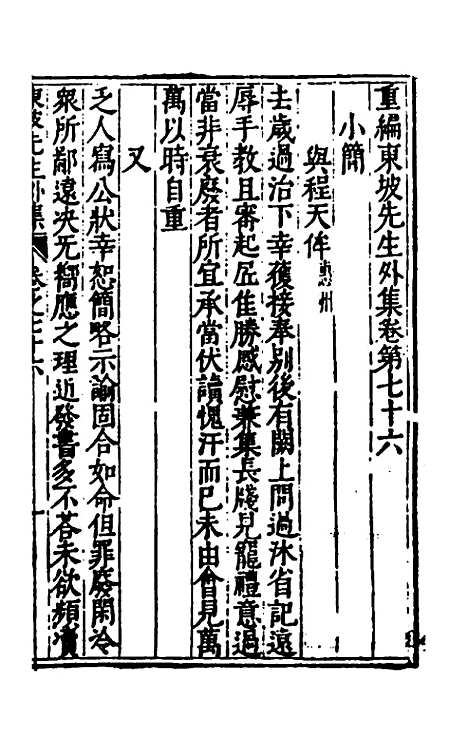 重編東坡先生外集卷第七十六
小簡
與程天侔惠州
去歲過治下幸獲接奉別後有闕上問過沐省記遠
辱手教且審起居佳勝感慰兼集長牋見寵禮意過
當非衰廢者所宜承當伏讀愧汗而已未由會見萬
萬以時自重
又
乏人寫公狀幸恕簡略示諭固合如命但罪廢閑冷
衆所鄙遠决无嚮應之理近發書多不荅未欲頻瀆
東坡先生外集 卷之七十六 一